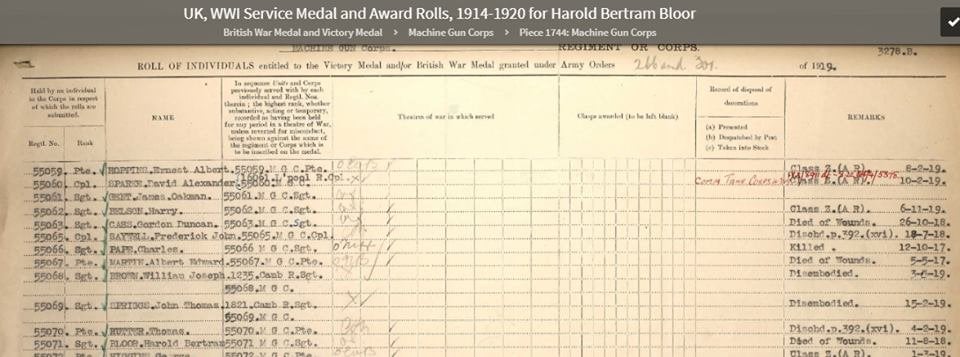 UK, WWI Service Medal and Award Rolls, 1914-1920 for Harold Bertram Bloor
British War Medal and Victory Medal > Machine Gun Corps > Piece 1744: Machine Gun Corps
MACHINE GUN Corps. REGIMENT OR CORPS. 3278.B.
ROLL OF INDIVIDUALS entitled to the Victory Medal and/or British War Medal granted under Army Orders 266 and 301. of 1919.
Held by an individual in the Corps in respect of which the rolls are submitted.
Regtl. No. Rank
NAME
In sequence Units and Corps previously served with by each individual and Regtl. Nos. therein; the highest rank, whether substantive, acting or temporary, recorded as having been held for any period in a theatre of War, unless reverted for misconduct, being shown against the name of the regiment or Corps which is to be inscribed on the medal.
Theatres of war in which served
Clasps awarded (to be left blank)
Record of disposal of decorations
(a) Presented
(b) Despatched by Post
(c) Taken into Stock
REMARKS
55059. Pte. HOPPINS.Ernest Albert. 55059.M G C.Pte. Class Z.(A R). 8-2-19.
55060. Cpl. David Alexander L'pool R.Cpl. 55060.M G C. Comm Tank Corps 10-2-19.
55061. Sgt. James Oakman. 55061.M G C.Sgt.
55062. Sgt. NELSON.Harry. 55062.M G C.Sgt. Class Z.(A R). 6-11-19.
55063. Sgt. CASS.Gordon Duncan. 55063.M G C.Sgt. Died of Wounds. 26-10-18.
55065. Cpl. Frederick John. 55065.M G C.Cpl. Dischd.p.392.(xvi). 18-7-18.
55066. Sgt. PAPE.Charles. 55066 M G C.Sgt. Killed. 12-10-17.
55067. Pte. MARTIN.Albert Edward. 55067.M G C.Pte. Died of Wounds. 5-5-17.
55068. Sgt. BROWN.William Joseph. 1235.Camb R.Sgt. Disembodied. 3-6-19.
55068.M G C.
55069. Sgt. SPRIGGS.John Thomas. 1821.Camb R.Sgt. Disembodied. 15-2-19.
55069.M G C.
55070. Pte. RUTTER.Thomas. 55070.M G C.Pte. Dischd.p.392.(xvi). 4-2-19.
55071. Sgt. BLOOR.Harold Bertram 55071 M G C.Sgt. Died of Wounds. 11-8-18.
55072. Pte. George 55072.M G C.Pte. Class Z.(A R). 1-3-19.